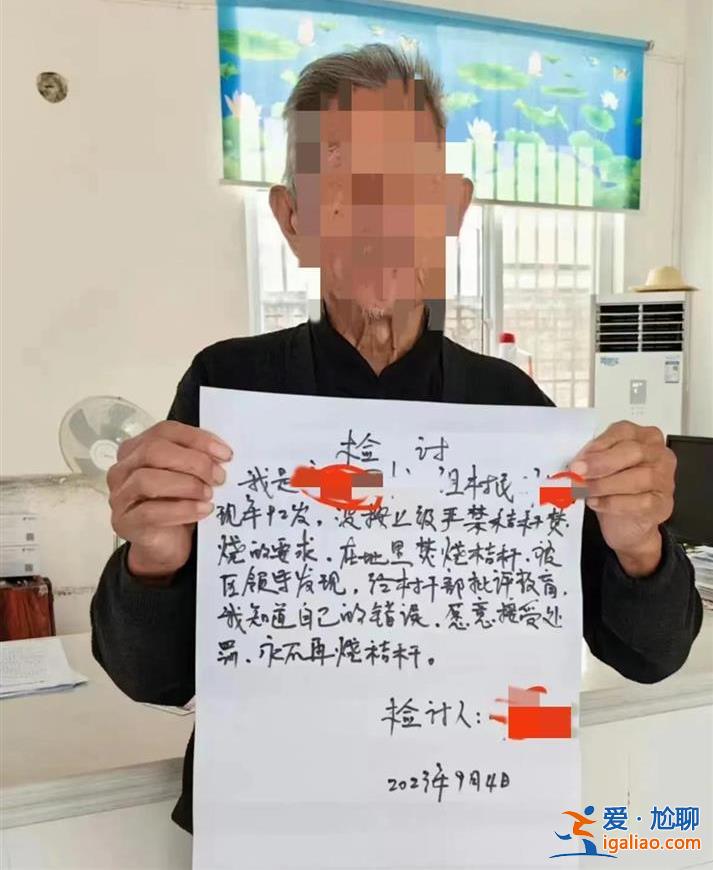 检 讨
我是 组村民:
现年92岁,没按上级严禁秸秆焚
烧的要求,在地里焚烧秸秆,被
区领导发现,经村干部批评教育,
我知道自己的错误,愿意接受处
罚,永不再烧秸秆。
检讨人:
2023年9月4日
爱·尬聊
igaliao.com